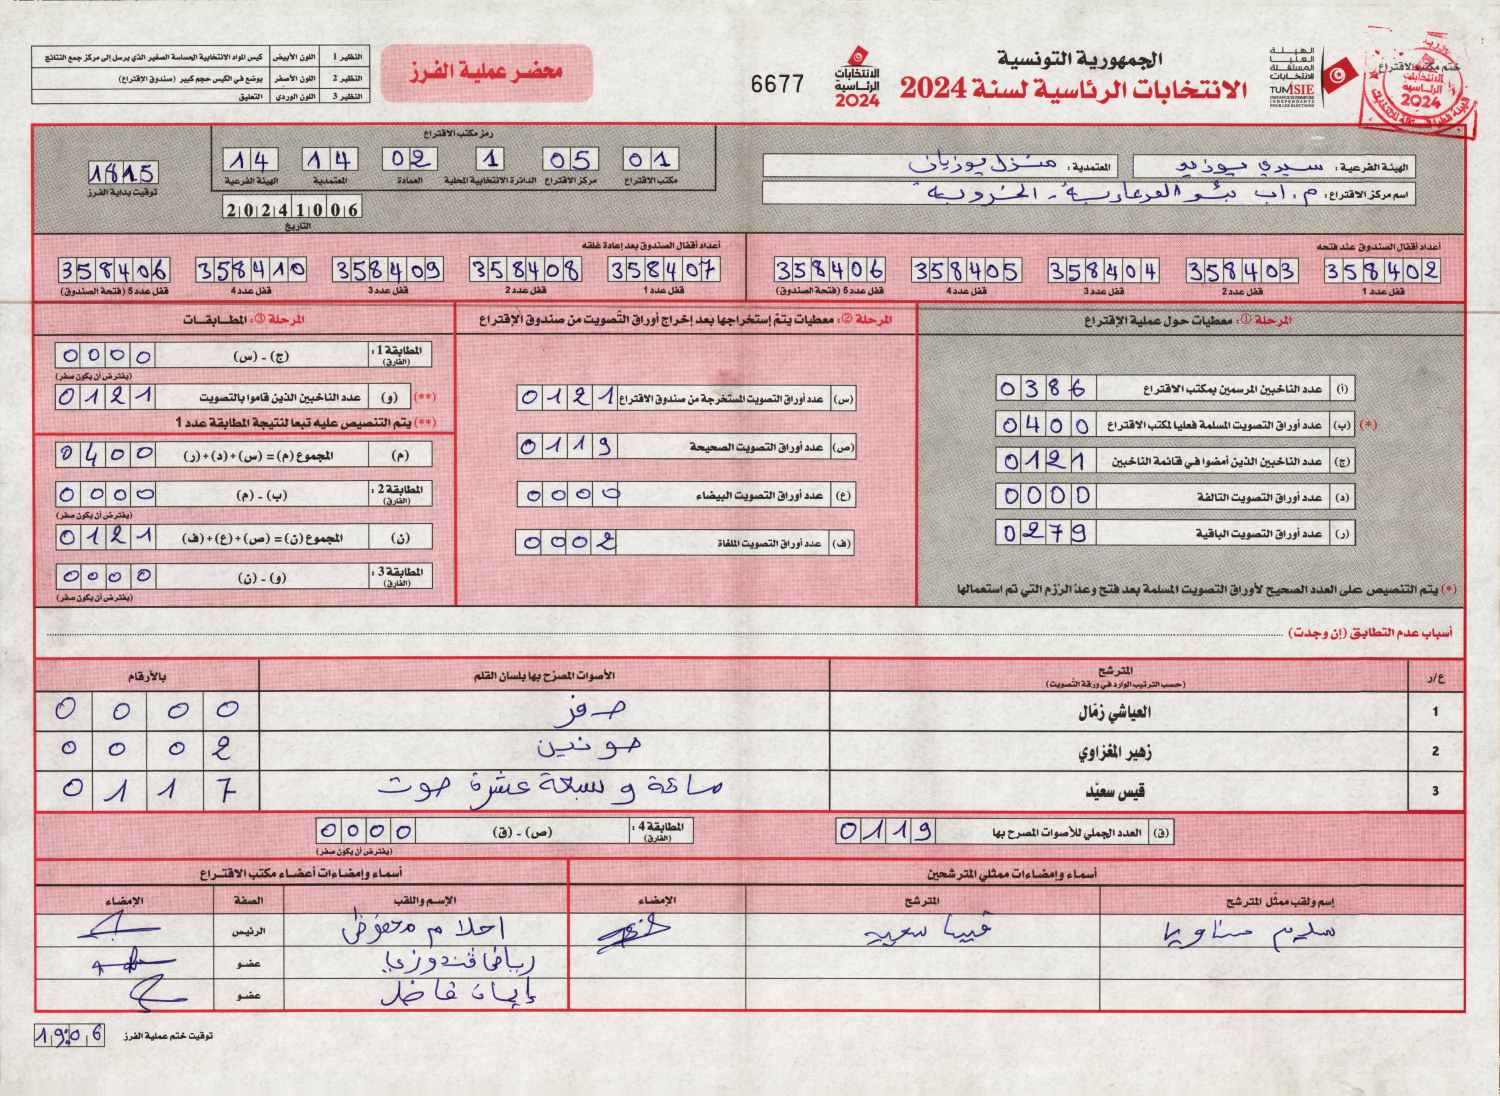 ختم مكتب الاقتراع
الانتخابات الرئاسية 2024
الهيئة العليا المستقلة للانتخابات
TUNISIE
الجمهورية التونسية
الانتخابات الرئاسية لسنة 2024
الانتخابات الرئاسية 2024
6677
محضر عملية الفرز
النظير 1 اللون الأبيض كيس المواد الانتخابية الحساسة الصغير الذي يرسل إلى مركز جمع النتائج
النظير 2 اللون الأصفر يوضع في الكيس حجم كبير (صندوق الإقتراع)
النظير 3 اللون الوردي التعليق
الهيئة الفرعية : سيدي بوزيد المعتمدية : منزل بوزيان
اسم مركز الاقتراع :
رمز مكتب الاقتراع
01 05 1 02 14 14
مكتب الاقتراع مركز الاقتراع الدائرة الانتخابية المحلية العمادة المعتمدية الهيئة الفرعية
20241006
التاريخ
1815
توقيت بداية الفرز
أعداد أقفال الصندوق عند فتحه
358402 358403 358404 358405 358406
قفل عدد 1 قفل عدد 2 قفل عدد 3 قفل عدد 4 قفل عدد 5 (فتحة الصندوق)
أعداد أقفال الصندوق بعد إعادة غلقه
358407 358408 358409 358410 358406
قفل عدد 1 قفل عدد 2 قفل عدد 3 قفل عدد 4 قفل عدد 5 (فتحة الصندوق)
المرحلة ①: معطيات حول عملية الإقتراع
(أ) عدد الناخبين المرسمين بمكتب الاقتراع 0386
(*) (ب) عدد أوراق التصويت المسلمة فعليا لمكتب الاقتراع 0400
(ج) عدد الناخبين الذين أمضوا في قائمة الناخبين 0121
(د) عدد أوراق التصويت التالفة 0000
(ر) عدد أوراق التصويت الباقية 0279
(*) يتم التنصيص على العدد الصحيح لأوراق التصويت المسلمة بعد فتح وعدّ الرّزم التي تم استعمالها
المرحلة ②: معطيات يتمّ إستخراجها بعد إخراج أوراق التّصويت من صندوق الإقتراع
(س) عدد أوراق التصويت المستخرجة من صندوق الاقتراع 0121
(ص) عدد أوراق التصويت الصحيحة 0119
(ع) عدد أوراق التصويت البيضاء 0000
(ف) عدد أوراق التصويت الملغاة 0002
المرحلة ③: المطابقات
المطابقة 1 : (الفارق) (ج) - (س) 0000
(يفترض أن يكون صفر)
(**) (و) عدد الناخبين الذين قاموا بالتصويت 0121
(**) يتم التنصيص عليه تبعا لنتيجة المطابقة عدد 1
(م) المجموع (م) = (س) + (د) + (ر) 0400
المطابقة 2 : (الفارق) (ب) - (م) 0000
(يفترض أن يكون صفر)
(ن) المجموع (ن) = (ص) + (ع) + (ف) 0121
المطابقة 3 : (الفارق) (و) - (ن) 0000
(يفترض أن يكون صفر)
أسباب عدم التطابق (إن وجدت)
ع/ر المترشح (حسب الترتيب الوارد في ورقة التصويت) الأصوات المصرّح بها بلسان القلم بالأرقام
1 العياشي زمّال صفر 0000
2 زهير المغزاوي صوتين 0002
3 قيس سعيّد مائة و سبعة عشرة صوت 0117
(ق) العدد الجملي للأصوات المصرح بها 0119
المطابقة 4 : (الفارق) (ص) - (ق) 0000
(يفترض أن يكون صفر)
أسماء وإمضاءات ممثلي المترشحين
إسم ولقب ممثّل المترشح المترشح الإمضاء
سليم قيس سعيد
أسماء وإمضاءات أعضاء مكتب الاقتراع
الإسم واللقب الصفة الإمضاء
احلام محفوظي الرئيس
رياض قندوزي عضو
إيمان فاضل عضو
توقيت ختم عملية الفرز 19:06